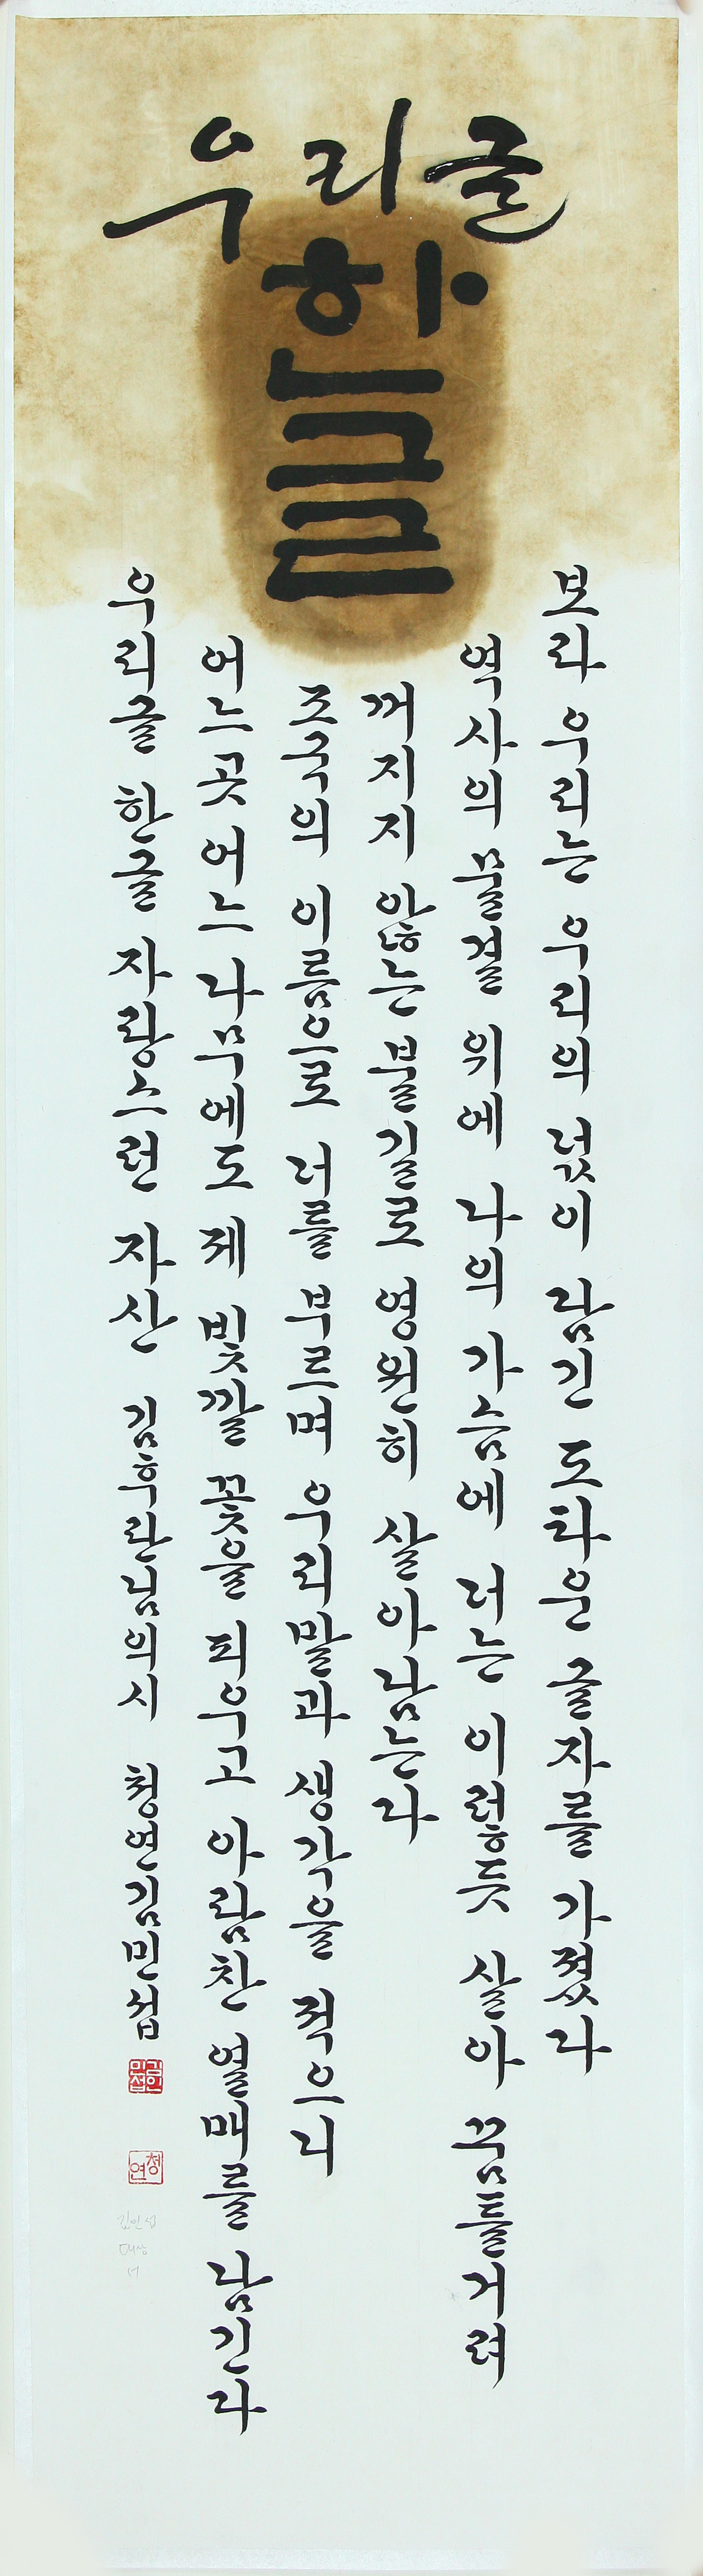 우리글
한글
보라 우리는 우리의 넋이 담긴 도타운 글자를 가졌다
역사의 물결 위에 나의 가슴에 너는 이렇듯 살아 꿈틀거려
꺼지지 않는 불길로 영원히 살아남는다
조국의 이름으로 너를 부르며 우리말과 생각을 적으니
어느곳 어느 나무에도 제 빛깔 꽃을 피우고 아람찬 열매를 남긴다
우리글 한글 자랑스런 자산 김후란님의시 청연김민섭
김민섭
청연